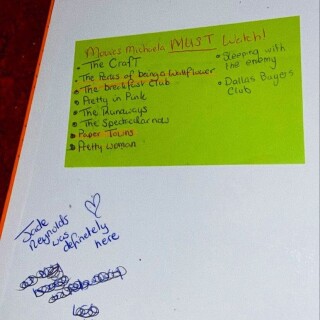 Movies Michaela MUST Watch!
• The Craft
• The Perks of being a Wallflower
• The breakfast Club
• Pretty in Pink
• The Runaways
• The Spectacular now
• Paper Towns
• Pretty woman
• Sleeping with the enemy
• Dallas Buyers Club
Jade
Reynolds
was
definetely
here